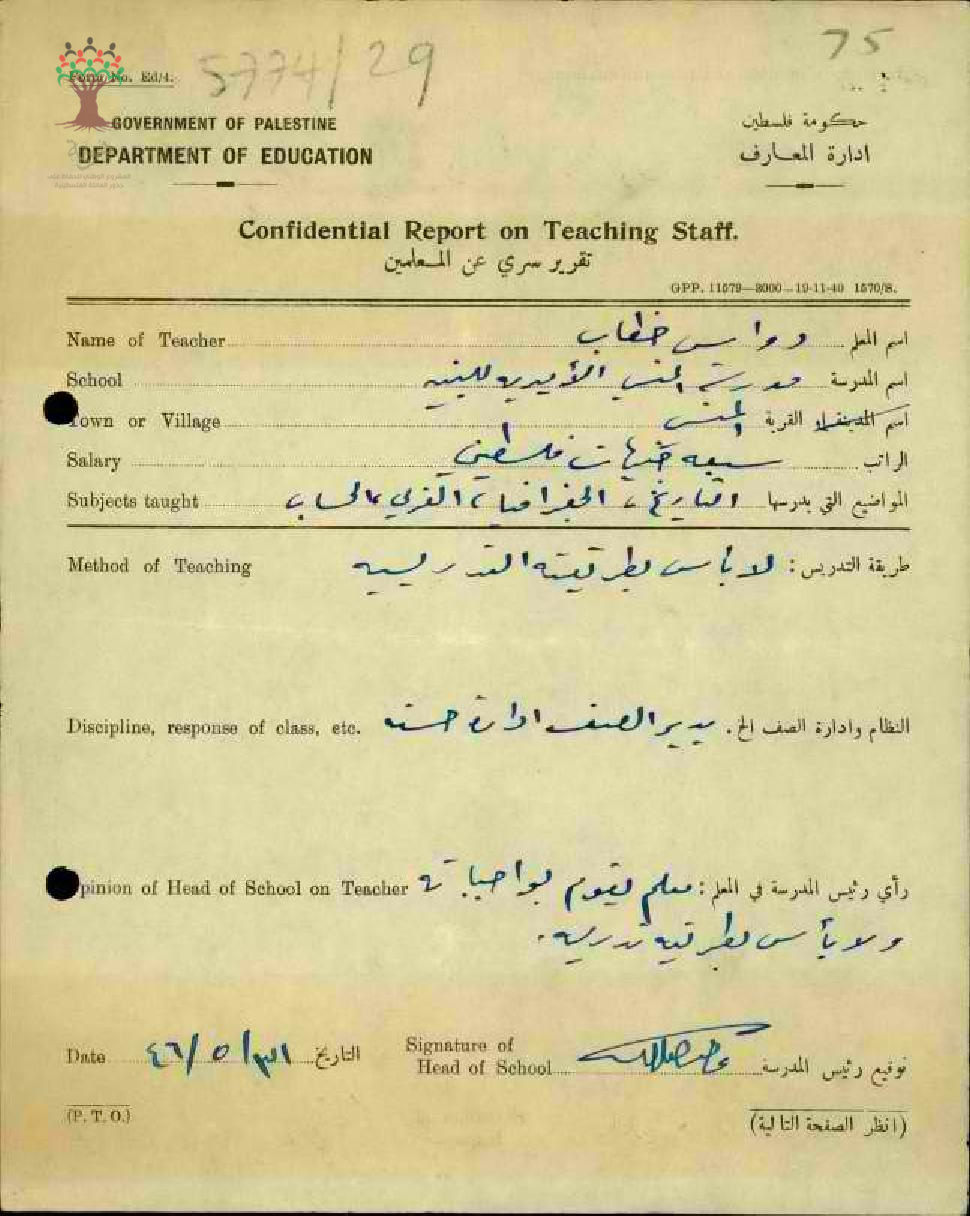 75
5774/29
Form No. Ed/4.
GOVERNMENT OF PALESTINE
حكومة فلسطين
DEPARTMENT OF EDUCATION
ادارة المعارف
Confidential Report on Teaching Staff.
تقرير سري عن المعلمين
GPP. 11579—3000—19-11-40 1570/S.
Name of Teacher خطاب اسم المعلم
School مدرسة الاميرية للبنين اسم المدرسة
Town or Village اسم القرية
Salary سبعة جنيهات فلسطيني الراتب
Subjects taught التاريخ، الجغرافيا، العربي، الحساب المواضيع التي يدرسها
Method of Teaching لا بأس بطريقته التدريسيه طريقة التدريس :
Discipline, response of class, etc. يدير الصف ادارة حسنه النظام وادارة الصف الخ.
Opinion of Head of School on Teacher معلم يقوم بواجباته رأي رئيس المدرسة في المعلم :
ولا بأس بطريقة تدريسه .
Date ٣١/٥/٤٦ التاريخ
Signature of
Head of School توقيع رئيس المدرسة
(P. T. O.)
(انظر الصفحة التالية)